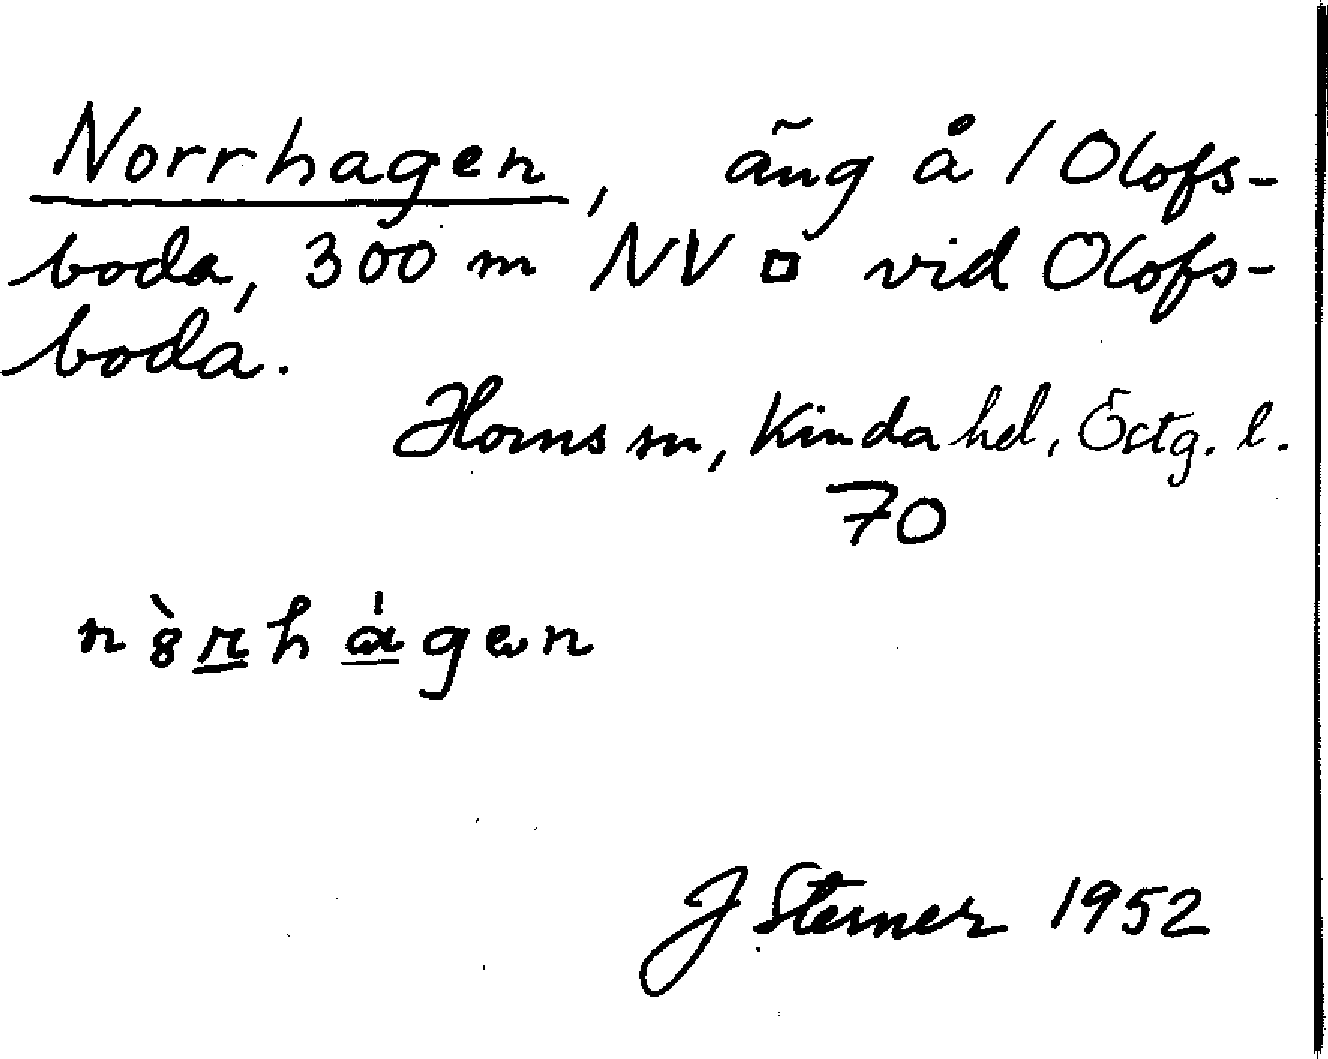 Norrhagen, äng å 1 Olofs-
boda, 300 m NV □ vid Olofs-
boda.
Horns sn, Kinda hd, Östg. l.
70
J Sterner 1952